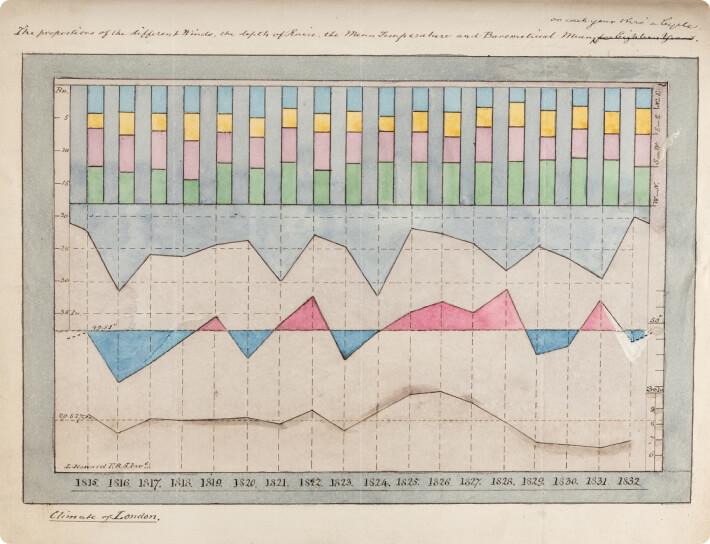 on each year thro' a Cycle
The proportions of the different Winds, the depth of Rain, the Mean Temperature and Barometrical Mean, for Eighteen Years.
5
10
15
20
25
30
35 In.
49.51°
50°
30 In
9
8
7
6
L. Howard F.R.S. Inv.
1815. 1816. 1817. 1818. 1819. 1820. 1821. 1822. 1823. 1824. 1825. 1826. 1827. 1828. 1829. 1830. 1831. 1832.
Climate of London.